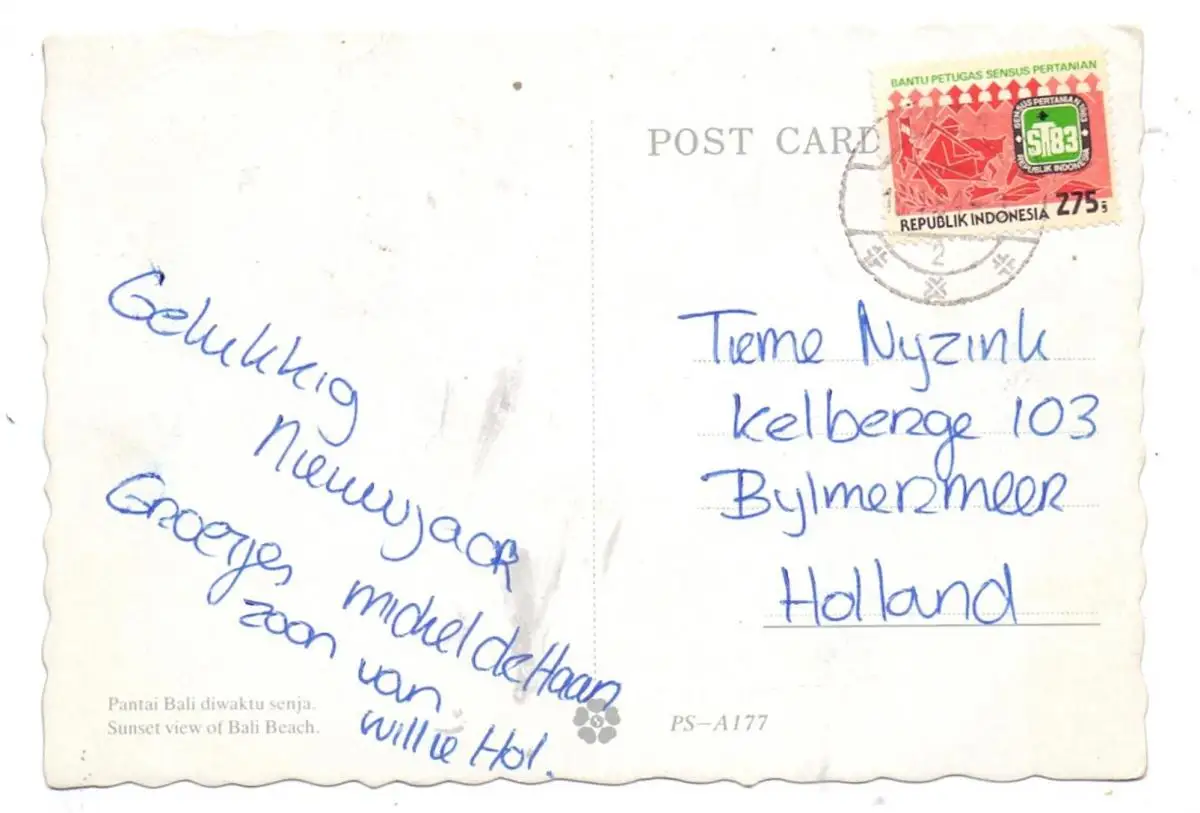 Gelukkig
Nieuwjaar
Groetjes michel de Haan
zoon van
willie Hol.
Pantai Bali diwaktu senja.
Sunset view of Bali Beach.
POST CARD
BANTU PETUGAS SENSUS PERTANIAN
SENSUS PERTANIAN 1983
ST83
REPUBLIK INDONESIA
REPUBLIK INDONESIA 275
2
Tieme Nyzink
Kelberge 103
Bylmermeer
Holland
PS-A177